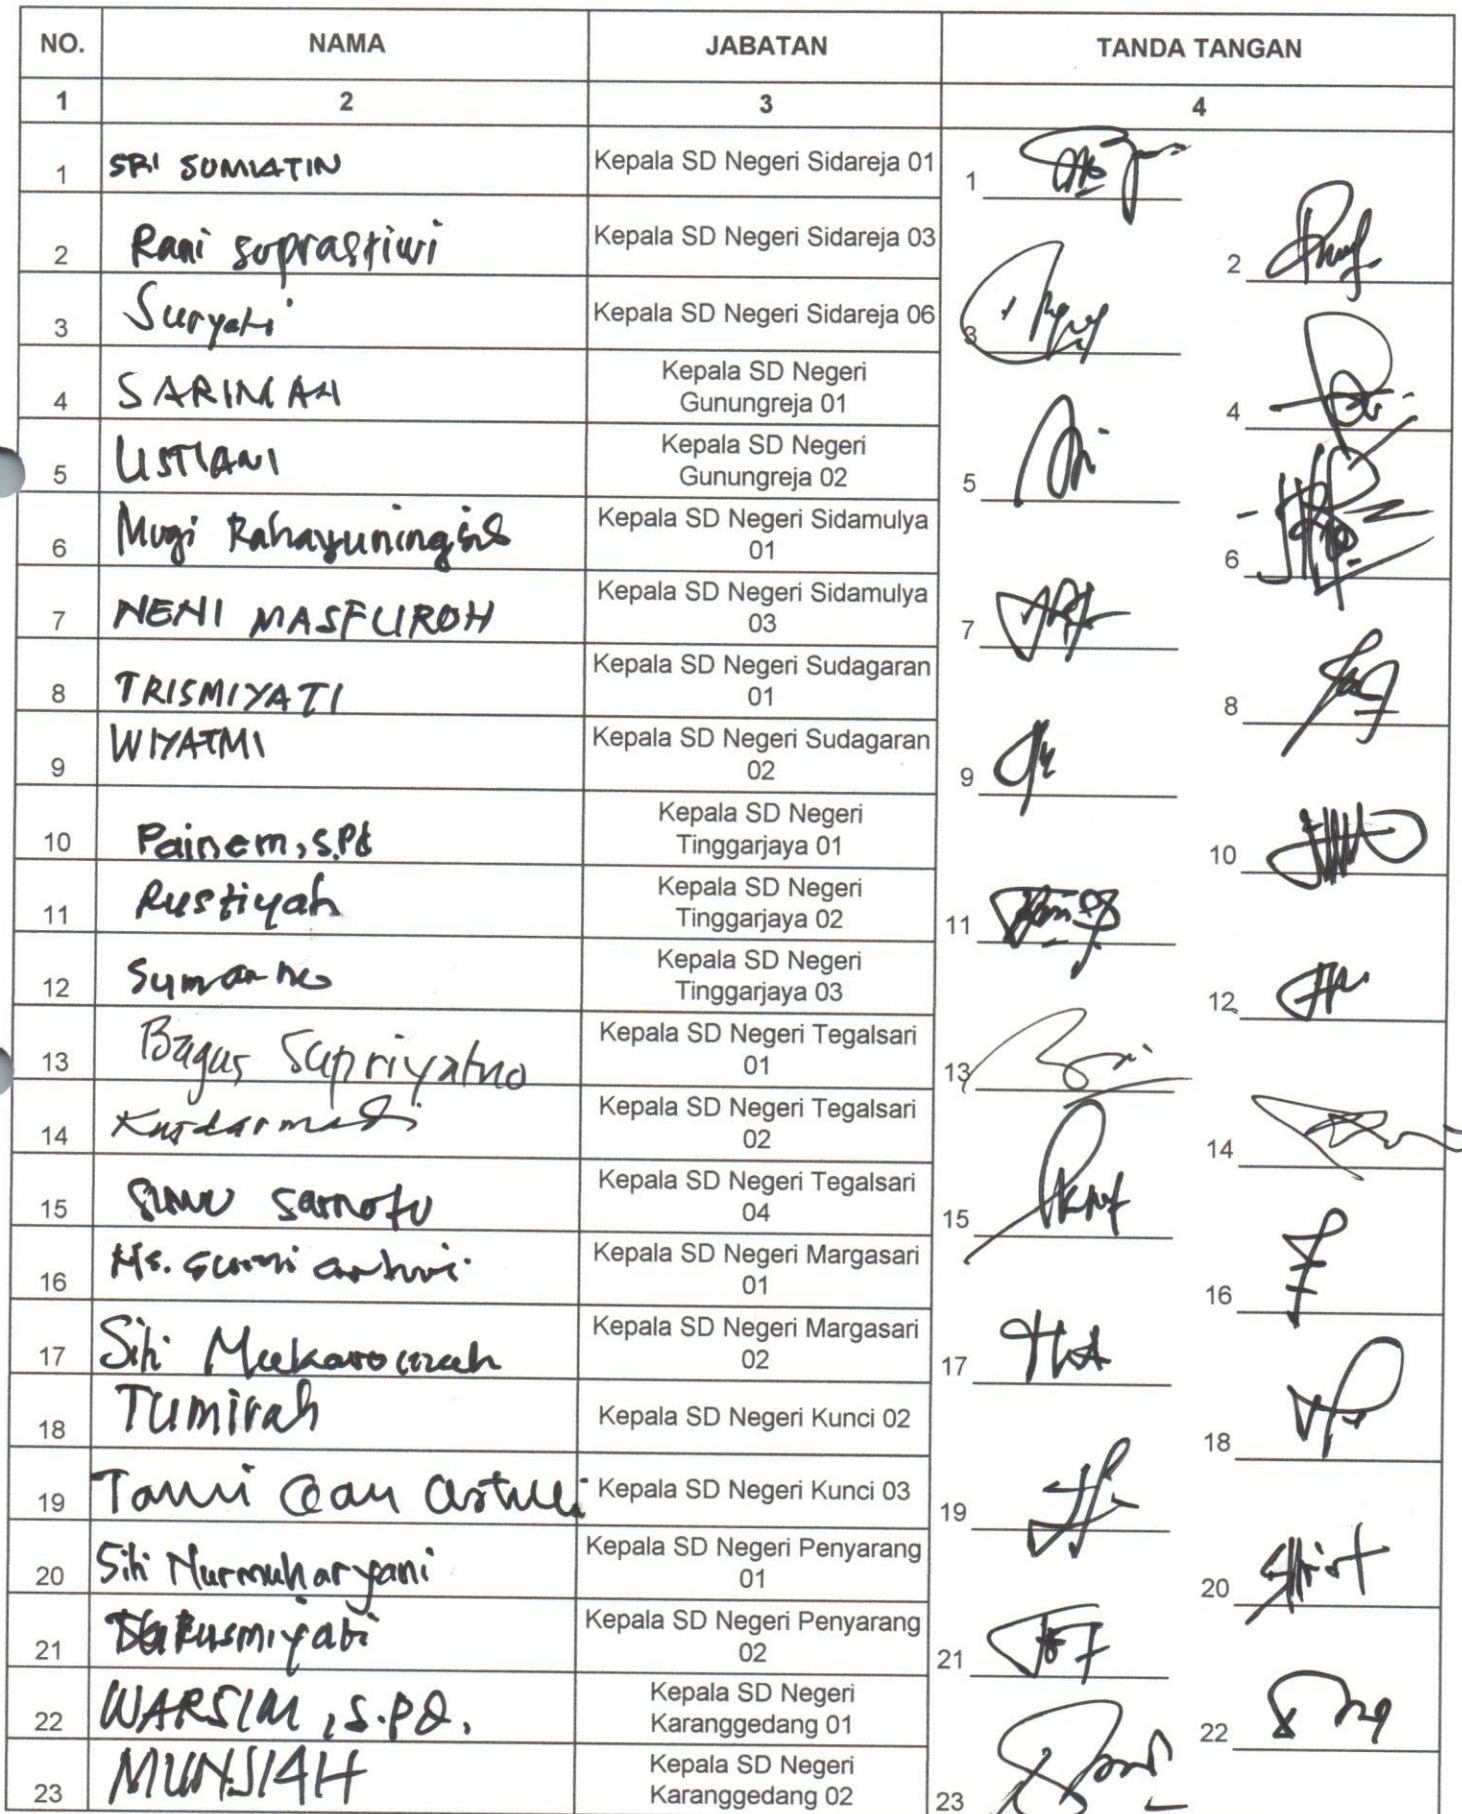 NO. NAMA JABATAN TANDA TANGAN
1 2 3 4
1 SRI SUMIATIN Kepala SD Negeri Sidareja 01 1
2 Rani suprastiwi Kepala SD Negeri Sidareja 03 2
3 Suryati Kepala SD Negeri Sidareja 06 3
4 SARIMAH Kepala SD Negeri
Gunungreja 01 4
5 LISTIANI Kepala SD Negeri
Gunungreja 02 5
6 Mugi Rahayuningsih Kepala SD Negeri Sidamulya
01 6
7 NENI MASFUROH Kepala SD Negeri Sidamulya
03 7
8 TRISMIYATI Kepala SD Negeri Sudagaran
01 8
9 WIYATMI Kepala SD Negeri Sudagaran
02 9
10 Painem, S.Pd Kepala SD Negeri
Tinggarjaya 01 10
11 Rustiyah Kepala SD Negeri
Tinggarjaya 02 11
12 Sumarno Kepala SD Negeri
Tinggarjaya 03 12
13 Bagus Supriyatno Kepala SD Negeri Tegalsari
01 13
14 Kusdarmadi Kepala SD Negeri Tegalsari
02 14
15 Kepala SD Negeri Tegalsari
04 15
16 Kepala SD Negeri Margasari
01 16
17 Siti Kepala SD Negeri Margasari
02 17
18 Tumirah Kepala SD Negeri Kunci 02 18
19 Kepala SD Negeri Kunci 03 19
20 Siti Nurmuharyani Kepala SD Negeri Penyarang
01 20
21 Kepala SD Negeri Penyarang
02 21
22 WARSIM, S.Pd. Kepala SD Negeri
Karanggedang 01 22
23 MUNSIAH Kepala SD Negeri
Karanggedang 02 23